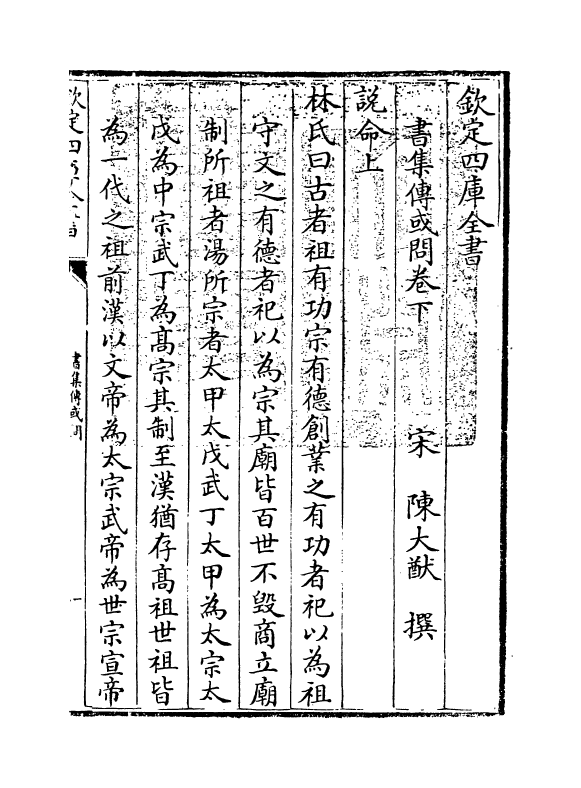 欽定四庫全書
書集傳或問卷下
宋 陳大猷 撰
說命上
林氏曰古者祖有功宗有德創業之有功者祀以為祖
守文之有德者祀以為宗其廟皆百世不毀商立廟
制所祖者湯所宗者太甲太戊武丁太甲為太宗太
戊為中宗武丁為髙宗其制至漢猶存髙祖世祖皆
為一代之祖前漢以文帝為太宗武帝為世宗宣帝
欽定四
書集傳或問
一